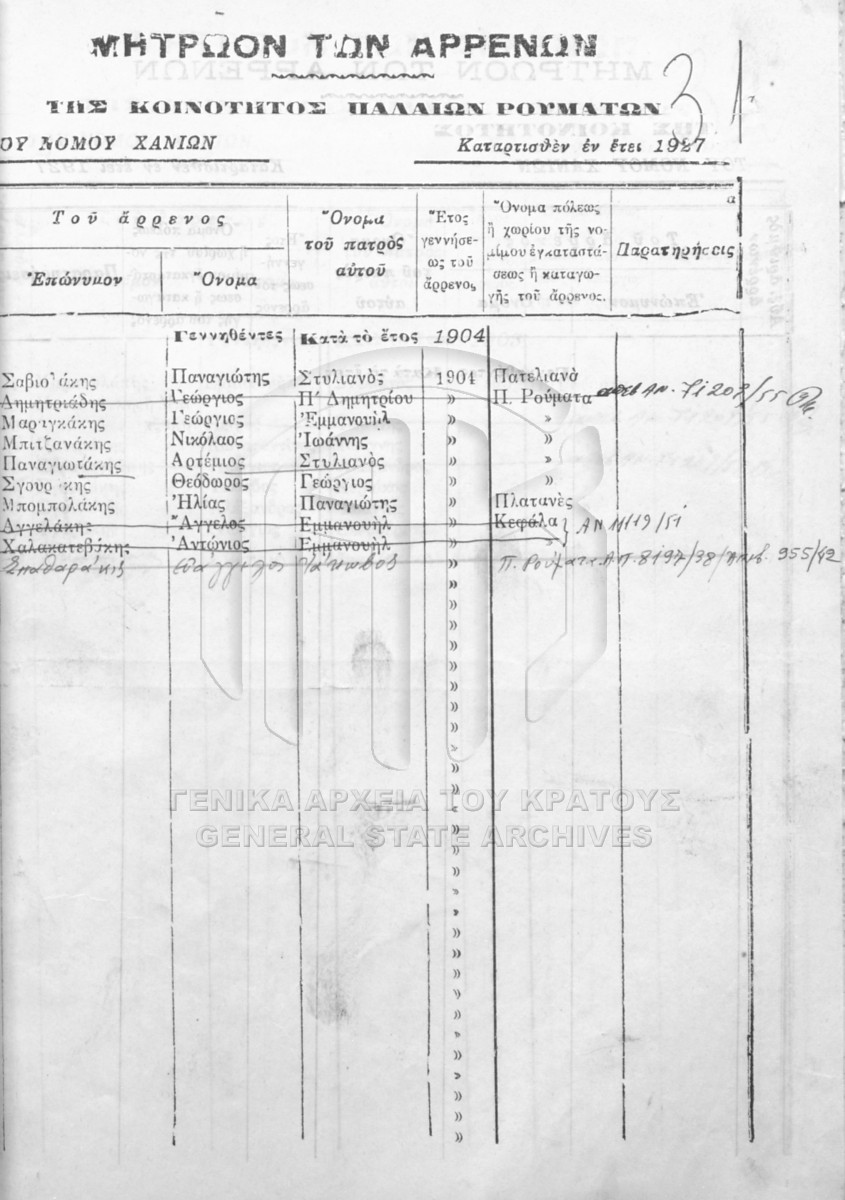 ΜΗΤΡΩΟΝ ΤΩΝ ΑΡΡΕΝΩΝ
ΤΗΣ ΚΟΙΝΟΤΗΤΟΣ ΠΑΛΑΙΩΝ ΡΟΥΜΑΤΩΝ 31
ΟΥ ΝΟΜΟΥ ΧΑΝΙΩΝ Καταρτισθὲν ἐν ἔτει 1927
Τοῦ ἄρρενος
Ἐπώνυμον Ὄνομα
Ὄνομα
τοῦ πατρὸς
αὐτοῦ
Ἔτος
γεννήσε-
ως τοῦ
ἄρρενος
Ὄνομα πόλεως
ἢ χωρίου τῆς νο-
μίμου ἐγκαταστά-
σεως ἢ καταγω-
γῆς τοῦ ἄρρενος.
α
Παρατηρήσεις
Γεννηθέντες Κατὰ τὸ ἔτος 1904
Παναγιώτης Στυλιανὸς 1904 Πατελιανὰ
Δημητριάδης Γεώργιος Π' Δημητρίου » Π. Ρούματα ΑΝ. 71207/55
Μαριγκάκης Γεώργιος Ἐμμανουὴλ » »
Μπιτζανάκης Νικόλαος Ἰωάννης » »
Παναγιωτάκης Ἀρτέμιος Στυλιανὸς » »
Θεόδωρος Γεώργιος » »
Μπομπολάκης Ἠλίας Παναγιώτης » Πλατανὲς
Ἀγγελάκης Ἄγγελος Ἐμμανουὴλ » Κεφάλα ΑΝ 11119/51
Χαλακατεβάκης Ἀντώνιος Ἐμμανουὴλ » »
Σπαθαράκις Ιάκωβος » Π. Ρούματα Α.Π. 8197/38 955/42
»
»
»
»
»
»
»
»
»
»
»
»
»
»
»
»
»
»
»
»
»
»
»
»
»
»
»
»
ΓΕΝΙΚΑ ΑΡΧΕΙΑ ΤΟΥ ΚΡΑΤΟΥΣ
GENERAL STATE ARCHIVES